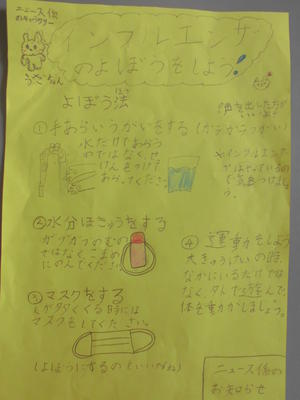 ニュース係
のキャラクター
うさちゃん
インフルエンザ
のよぼうをしよう!
よぼう法
ぼうほう
声を出した方が
いいよ!
①手あらいうがいをする(ガラガラうがい)
水だけであらう
のではなく、せ
けんをつけて
あらってください。
※インフルエンザ
がはやっているの
で気をつけましょ
う。
②水分ほきゅうをする
ガブガブのむの
ではなく、こまめ
にのんでください。
③マスクをする
人が多くくる時には
マスクをしてください。
(よぼうにするのもいいがね)
④運動をしよう
大きゅうけいの時、
なかにいるだけでは
なく、外で遊んで、
体を動かしましょう。
ニュース係の
お知らせ